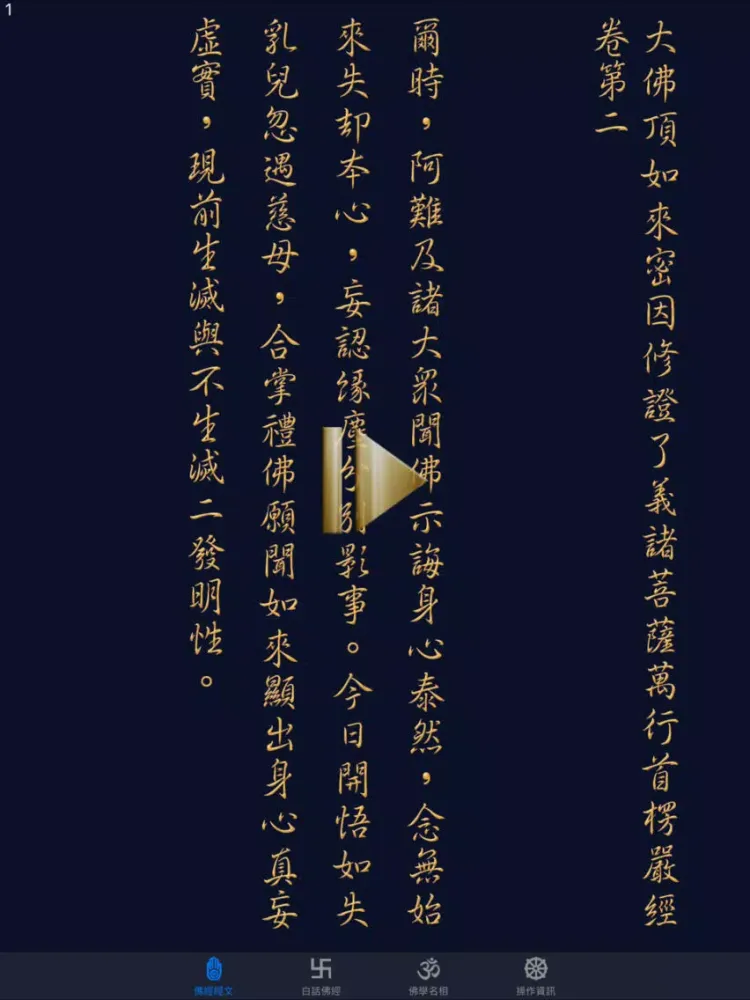 1
大佛頂如來密因修證了義諸菩薩萬行首楞嚴經
卷第二
爾時，阿難及諸大眾聞佛示誨身心泰然，念無始
來失却本心，妄認緣塵分別影事。今日開悟如失
乳兒忽遇慈母，合掌禮佛願聞如來顯出身心真妄
虛實，現前生滅與不生滅二發明性。
白話佛經
佛學名相
操作資訊